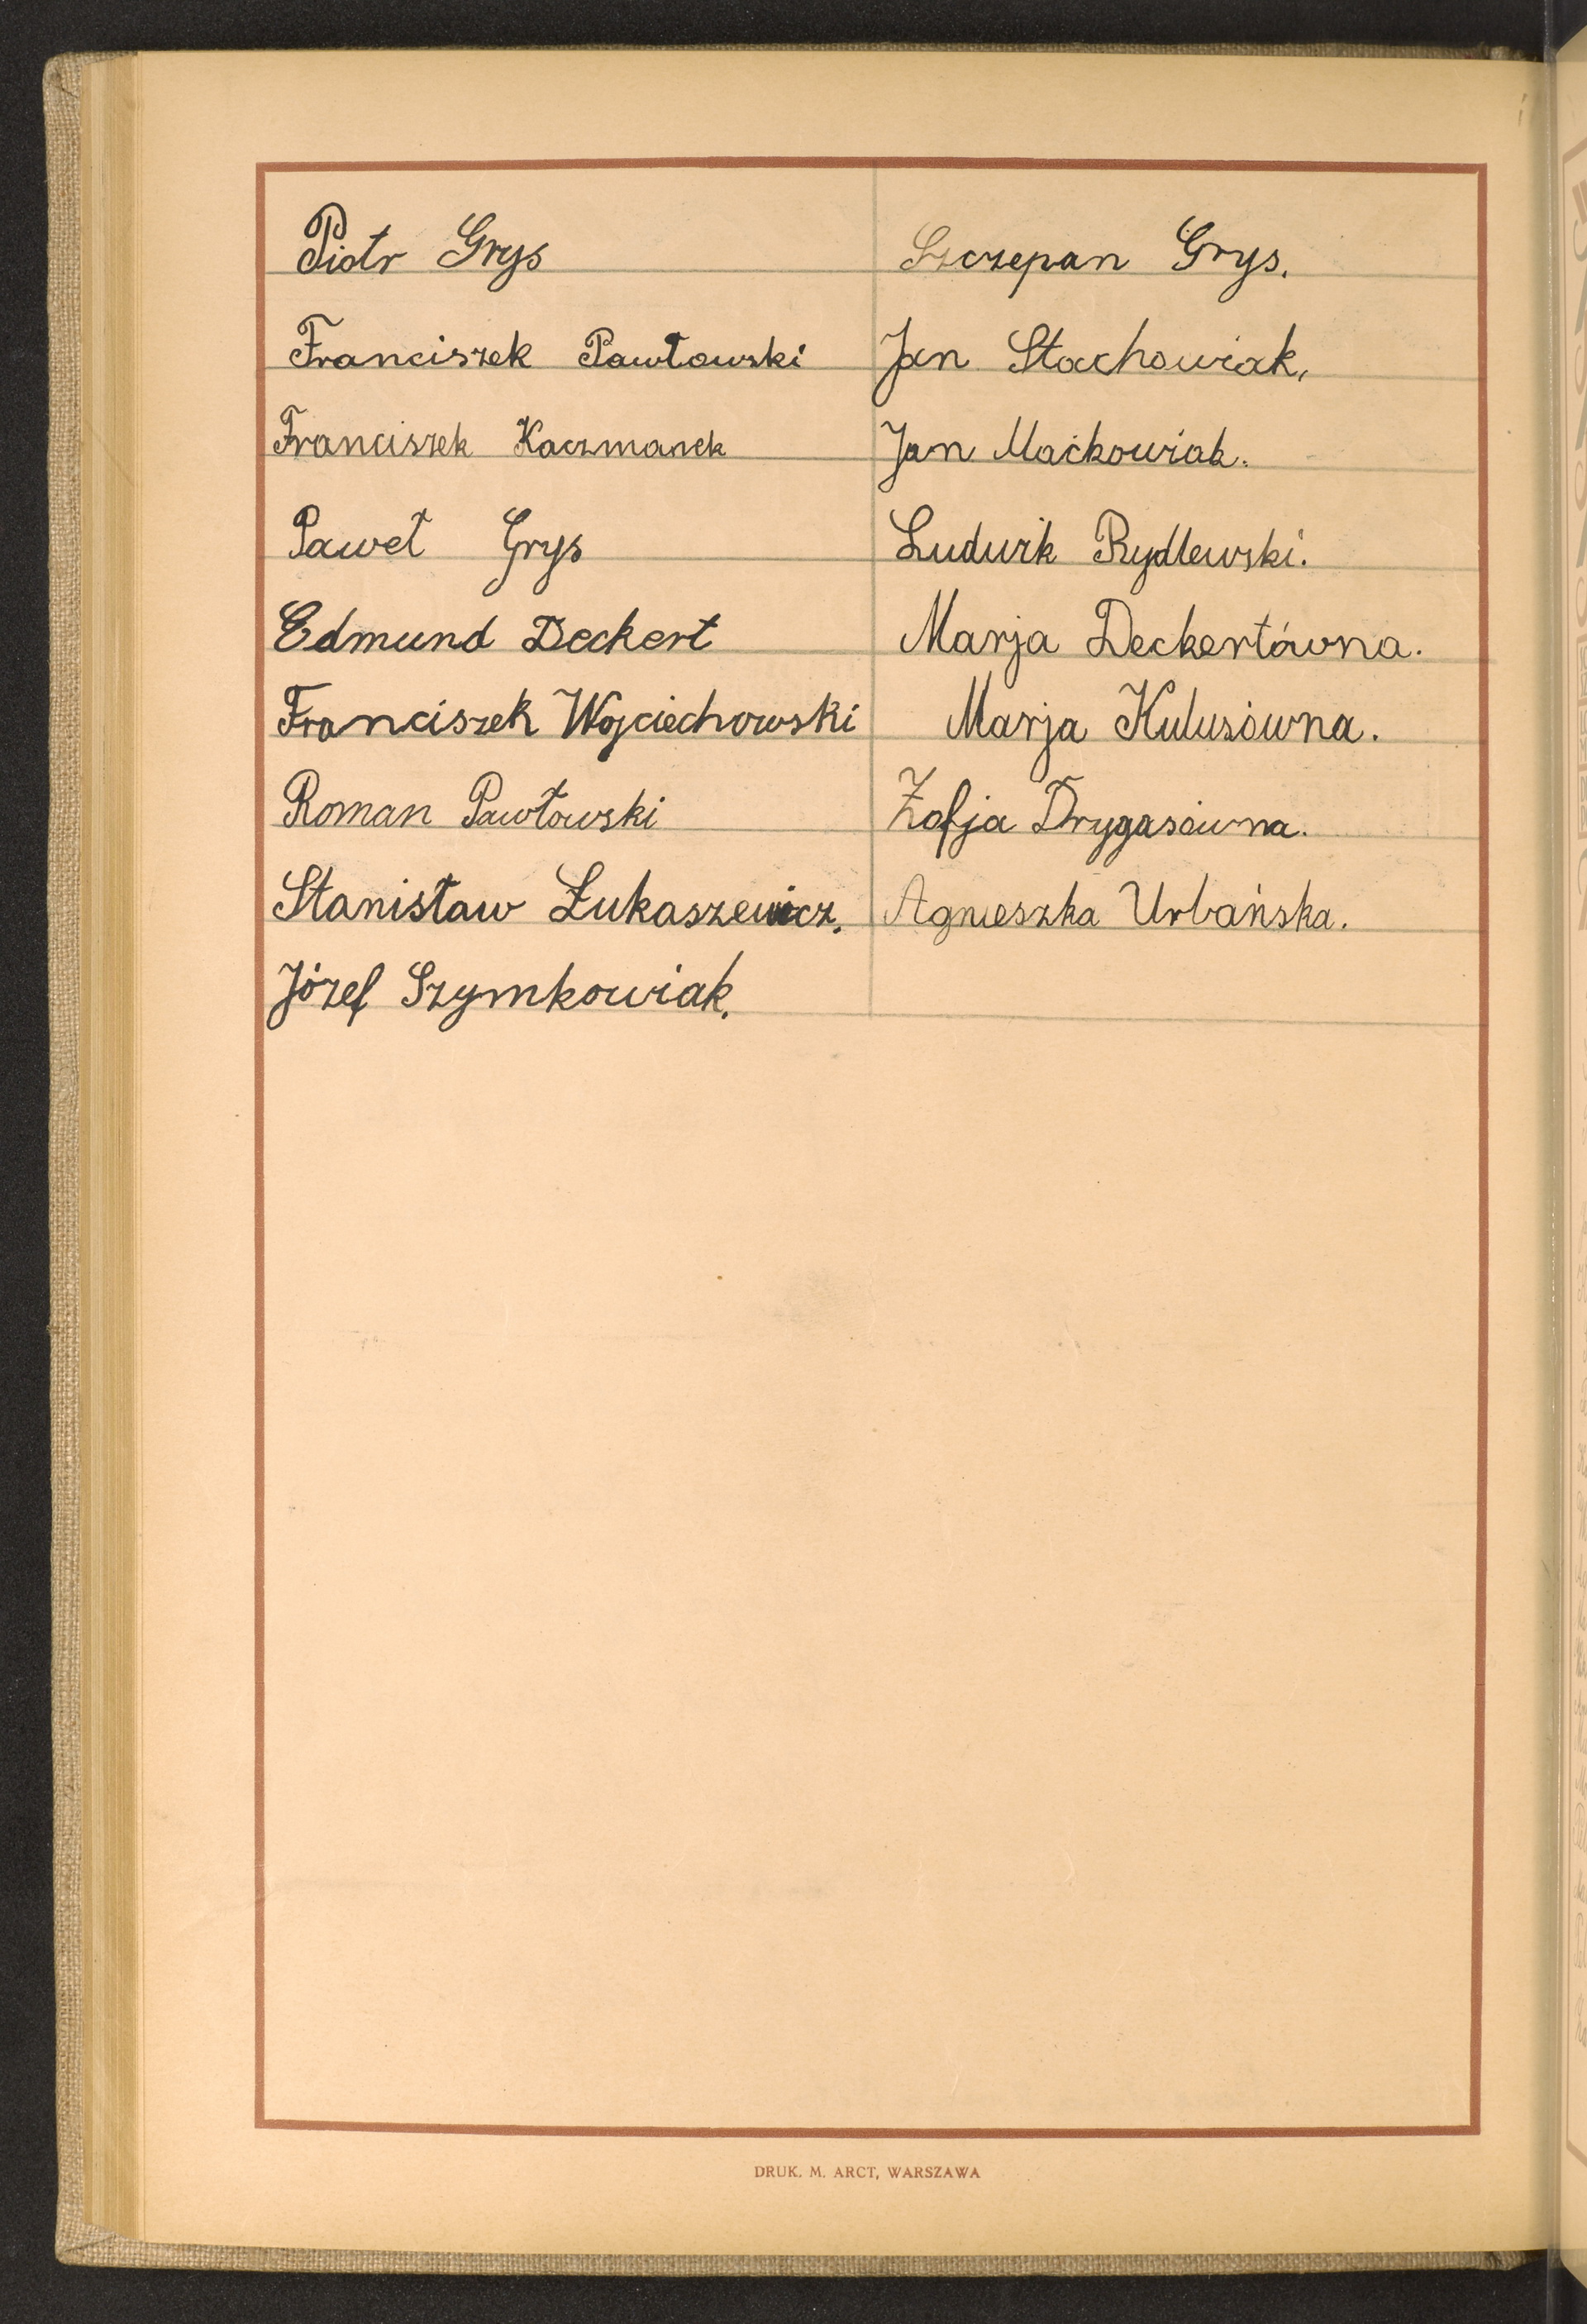 Piotr Grys
Szczepan Grys.
Franciszek Pawłowski
Jan Stachowiak,
Franciszek Kaczmarek
Jan Maćkowiak.
Paweł Grys
Ludwik Rydlewski.
Edmund Deckert
Marja Deckertówna.
Franciszek Wojciechowski
Marja Kulusówna.
Roman Pawłowski
Zofja Drygasówna.
Stanisław Łukaszewicz.
Agnieszka Urbańska.
Józef Szymkowiak.
DRUK. M. ARCT, WARSZAWA